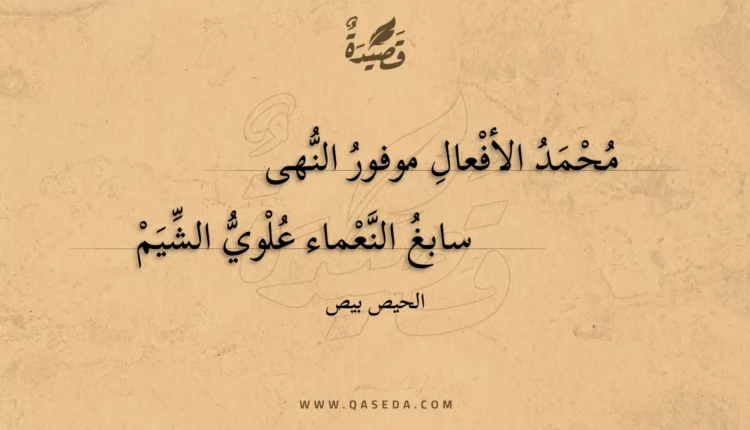 قَصِيْدَةٌ
مُحْمَدُ الأفْعالِ موفورُ النُّهى
سابغُ النَّعْماء عُلْويُّ الشِّيَمْ
الحيص بيص
WWW.QASEDA.COM